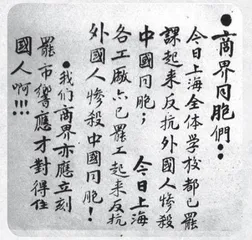 ●商界同胞們：
今日上海全体学校都已罷
課起来反抗外國人惨殺
中國同胞； 今日上海
各工廠亦已罷工起来反抗
外國人惨殺中國同胞！
●我们商界亦應立刻
罷市響應才對得住
國人啊!!!